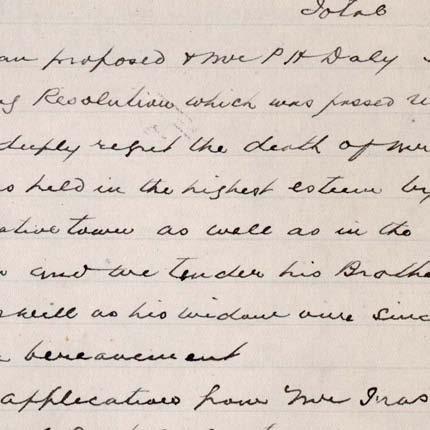 Total
an proposed & Mr P H Daly
g Resolution which was passed
deeply regret the death of Mr
s held in the highest esteem by
ative town as well as in the
and we tender his Brothe
well as his widow our sinc
bereavement
applications from Mr